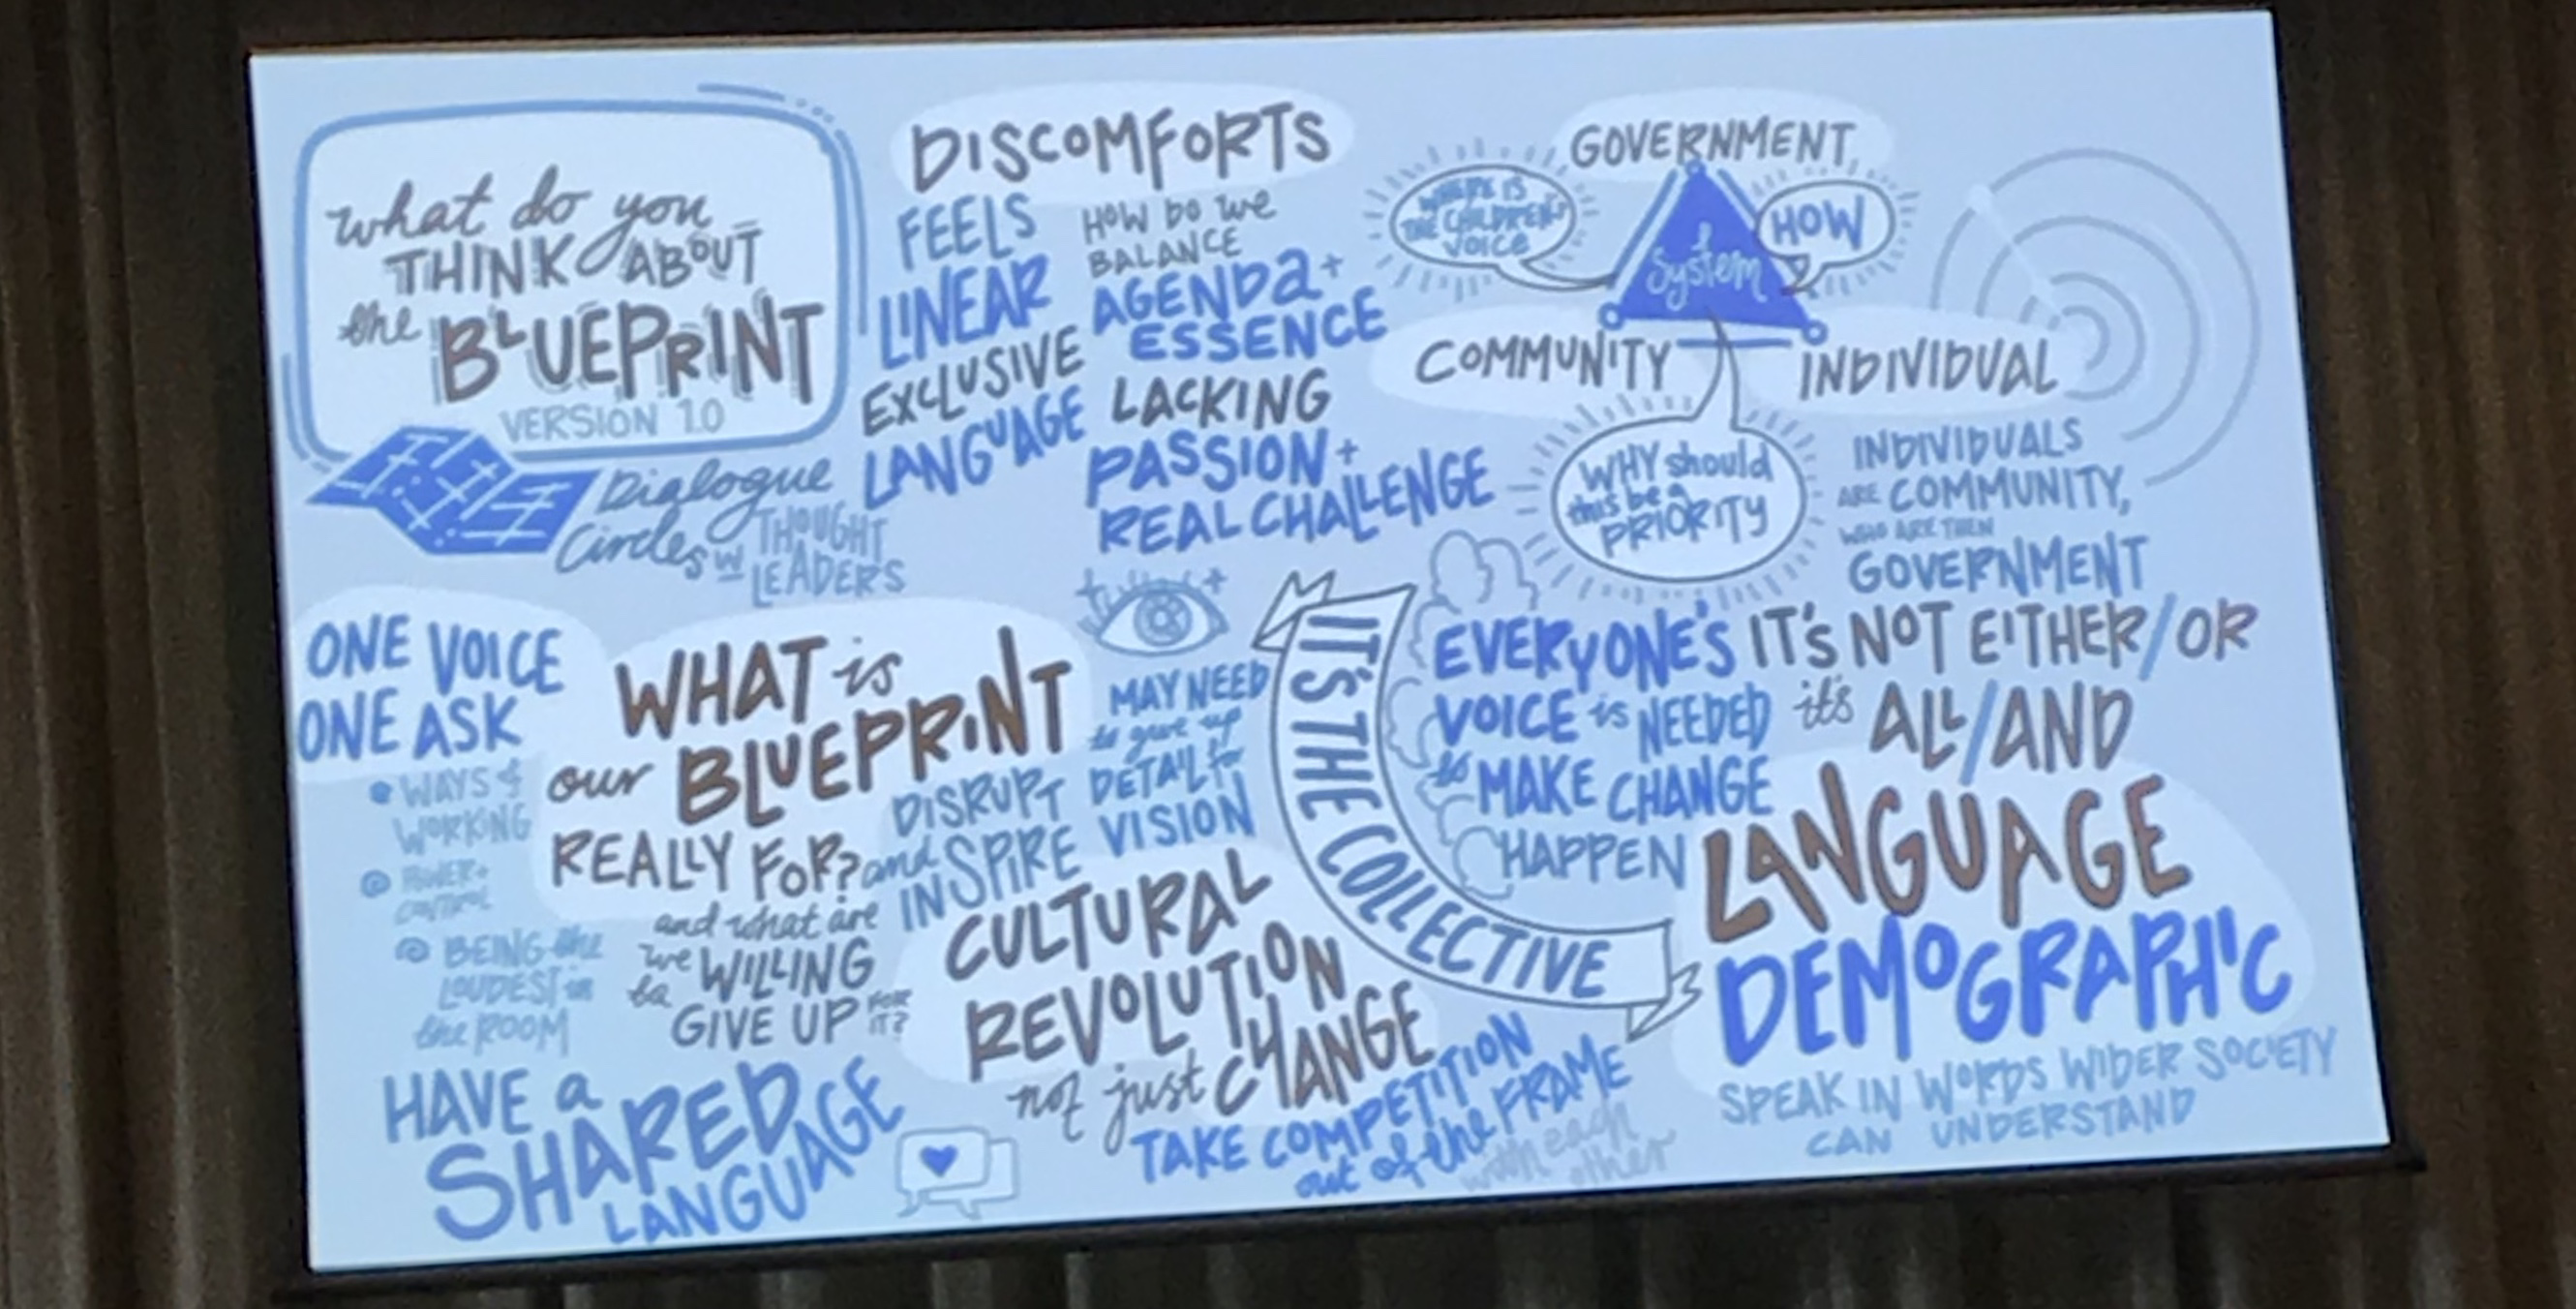 what do you
THINK ABOUT
the BLUEPRINT
VERSION 1.0
Dialogue
Circles w THOUGHT
LEADERS
DISCOMFORTS
FEELS
LINEAR
EXCLUSIVE
LANGUAGE
HOW DO WE
BALANCE
AGENDA +
ESSENCE
LACKING
PASSION +
REAL CHALLENGE
GOVERNMENT
WHERE IS
THE CHILDREN'S
VOICE
System
HOW
COMMUNITY
INDIVIDUAL
WHY should
this be a
PRIORITY
INDIVIDUALS
ARE COMMUNITY,
WHO ARE THEN
GOVERNMENT
ONE VOICE
ONE ASK
WAYS of
WORKING
POWER +
CONTROL
BEING the
LOUDEST in
the ROOM
WHAT is
our BLUEPRINT
REALLY FOR?
and what are
we WILLING
to GIVE UP FOR
IT?
DISRUPT
and INSPIRE
MAY NEED
to give up
DETAIL for
VISION
IT'S THE COLLECTIVE
EVERYONE'S
VOICE is NEEDED
to MAKE CHANGE
HAPPEN
IT'S NOT EITHER/OR
it's ALL/AND
CULTURAL
REVOLUTION
not just CHANGE
LANGUAGE
DEMOGRAPHIC
SPEAK IN WORDS WIDER SOCIETY
CAN UNDERSTAND
HAVE a
SHARED
LANGUAGE
TAKE COMPETITION
out of the FRAME
with each
other